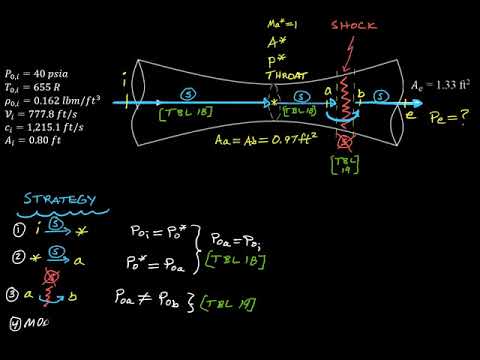 P₀,ᵢ = 40 psia
T₀,ᵢ = 655 R
ρ₀,ᵢ = 0.162 lbm/ft³
Vᵢ = 777.8 ft/s
cᵢ = 1,215.1 ft/s
Aᵢ = 0.80 ft
Ma*=1
A*
P*
THROAT
SHOCK
i
S
[TBL 18]
*
S
[TBL 18]
a
b
S
e
Aₑ = 1.33 ft²
Pe = ?
Aa = Ab = 0.97 ft²
S
[TBL 19]
STRATEGY
① i S *
② * S a
S
③ a b
④ MO
Poi = Po*
Po* = Poa
} Poa = Poi
[TBL 18]
Poa ≠ Pob } [TBL 19]